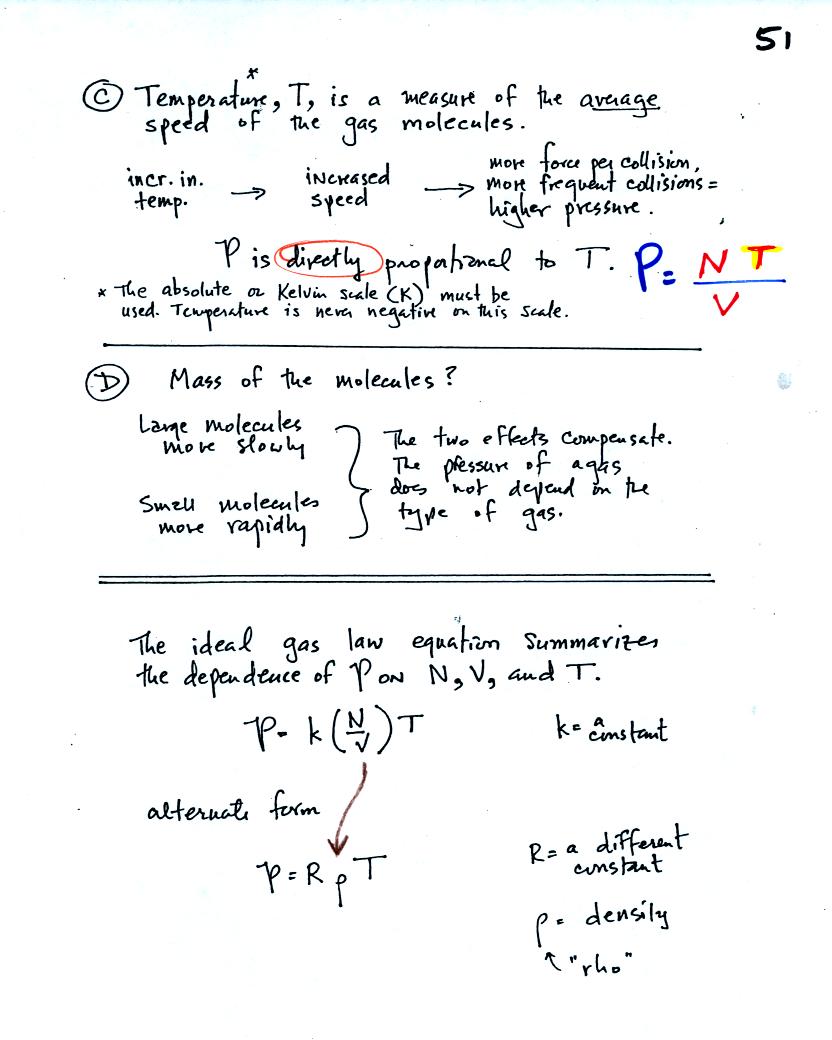 51
*
Ⓒ Temperature, T, is a measure of the average
speed of the gas molecules.
incr. in. temp. → increased speed → more force per collision,
more frequent collisions =
higher pressure.
P is directly proportional to T. P = N T / V
* The absolute or Kelvin scale (K) must be
used. Temperature is never negative on this scale.
Ⓓ Mass of the molecules?
Large molecules
move slowly
Small molecules
move rapidly
The two effects compensate.
The pressure of a gas
does not depend on the
type of gas.
The ideal gas law equation summarizes
the dependence of P on N, V, and T.
P = k (N/V) T
k = a constant
alternate form
P = R ρ T
R = a different
constant
ρ = density
↑ "rho"